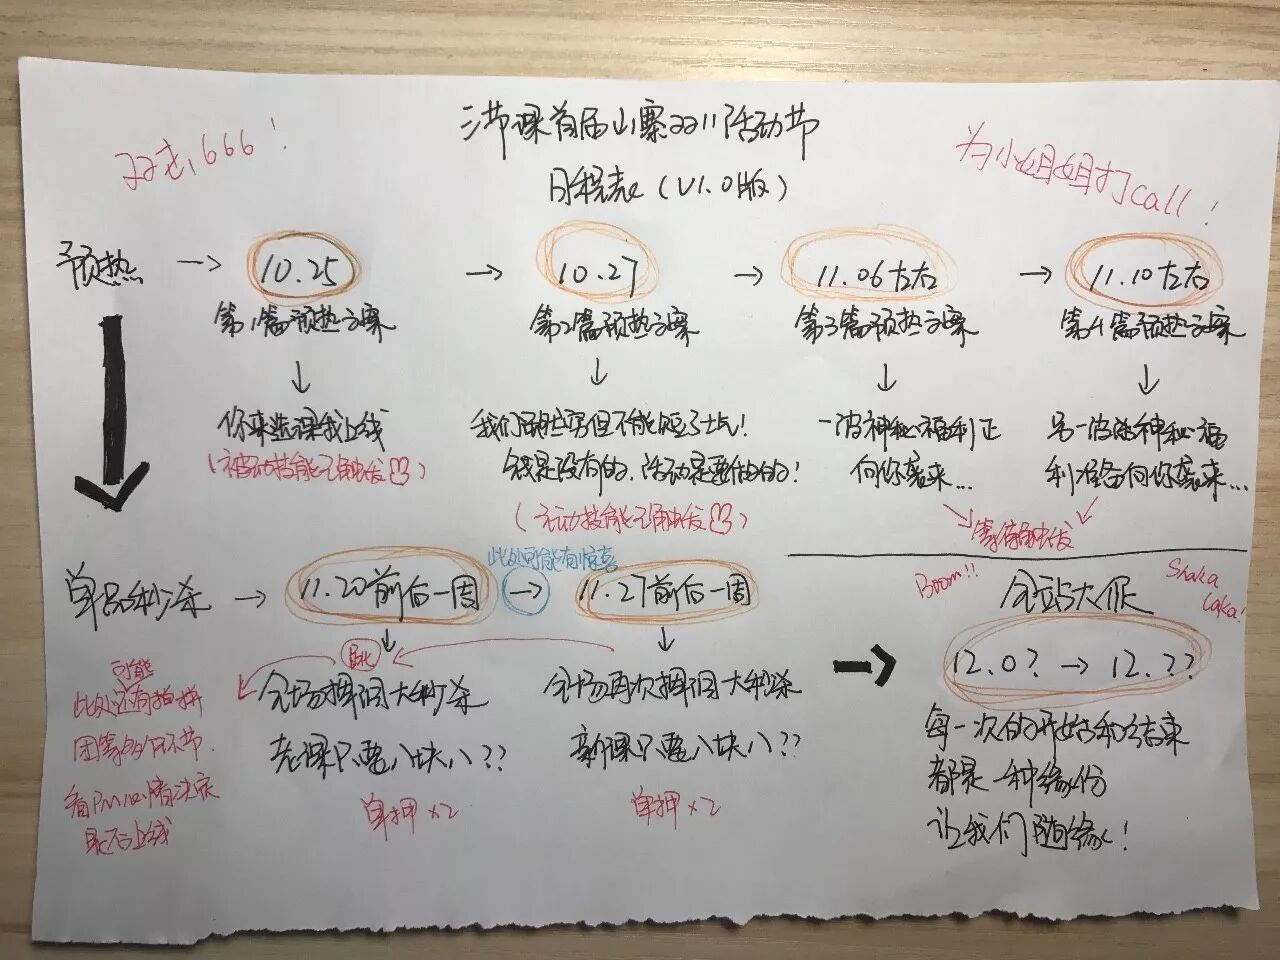 三节课首届山寨双11活动节
日程表（V1.0版）
双击,666！
为小姐姐打call！
预热 → 10.25 → 10.27 → 11.06左右 → 11.10左右
第1篇预热方案 第2篇预热方案 第3篇预热方案 第4篇预热方案
你来选课我上线
（被动技能已触发）
我们虽然穷但不能短了士气！
钱是没有的,活动是要做的！
（主动技能已触发）
一波神秘福利正
向你袭来...
另一波神秘福
利准备向你袭来...
等待触发
单品秒杀 → 11.20前后一周 → 11.27前后一周
此处可能有惊喜
全场择困大秒杀
老课只要八块八??
单押×2
全场再次择困大秒杀
新课只要八块八??
单押×2
可能
此处还有拍拼
团等多个环节.
看PM心情决定
是否上线
Boom!!
全站大促
Shaka
Laka!
12.0? → 12.??
每一次的开始和结束
都是一种缘份
让我们随缘！